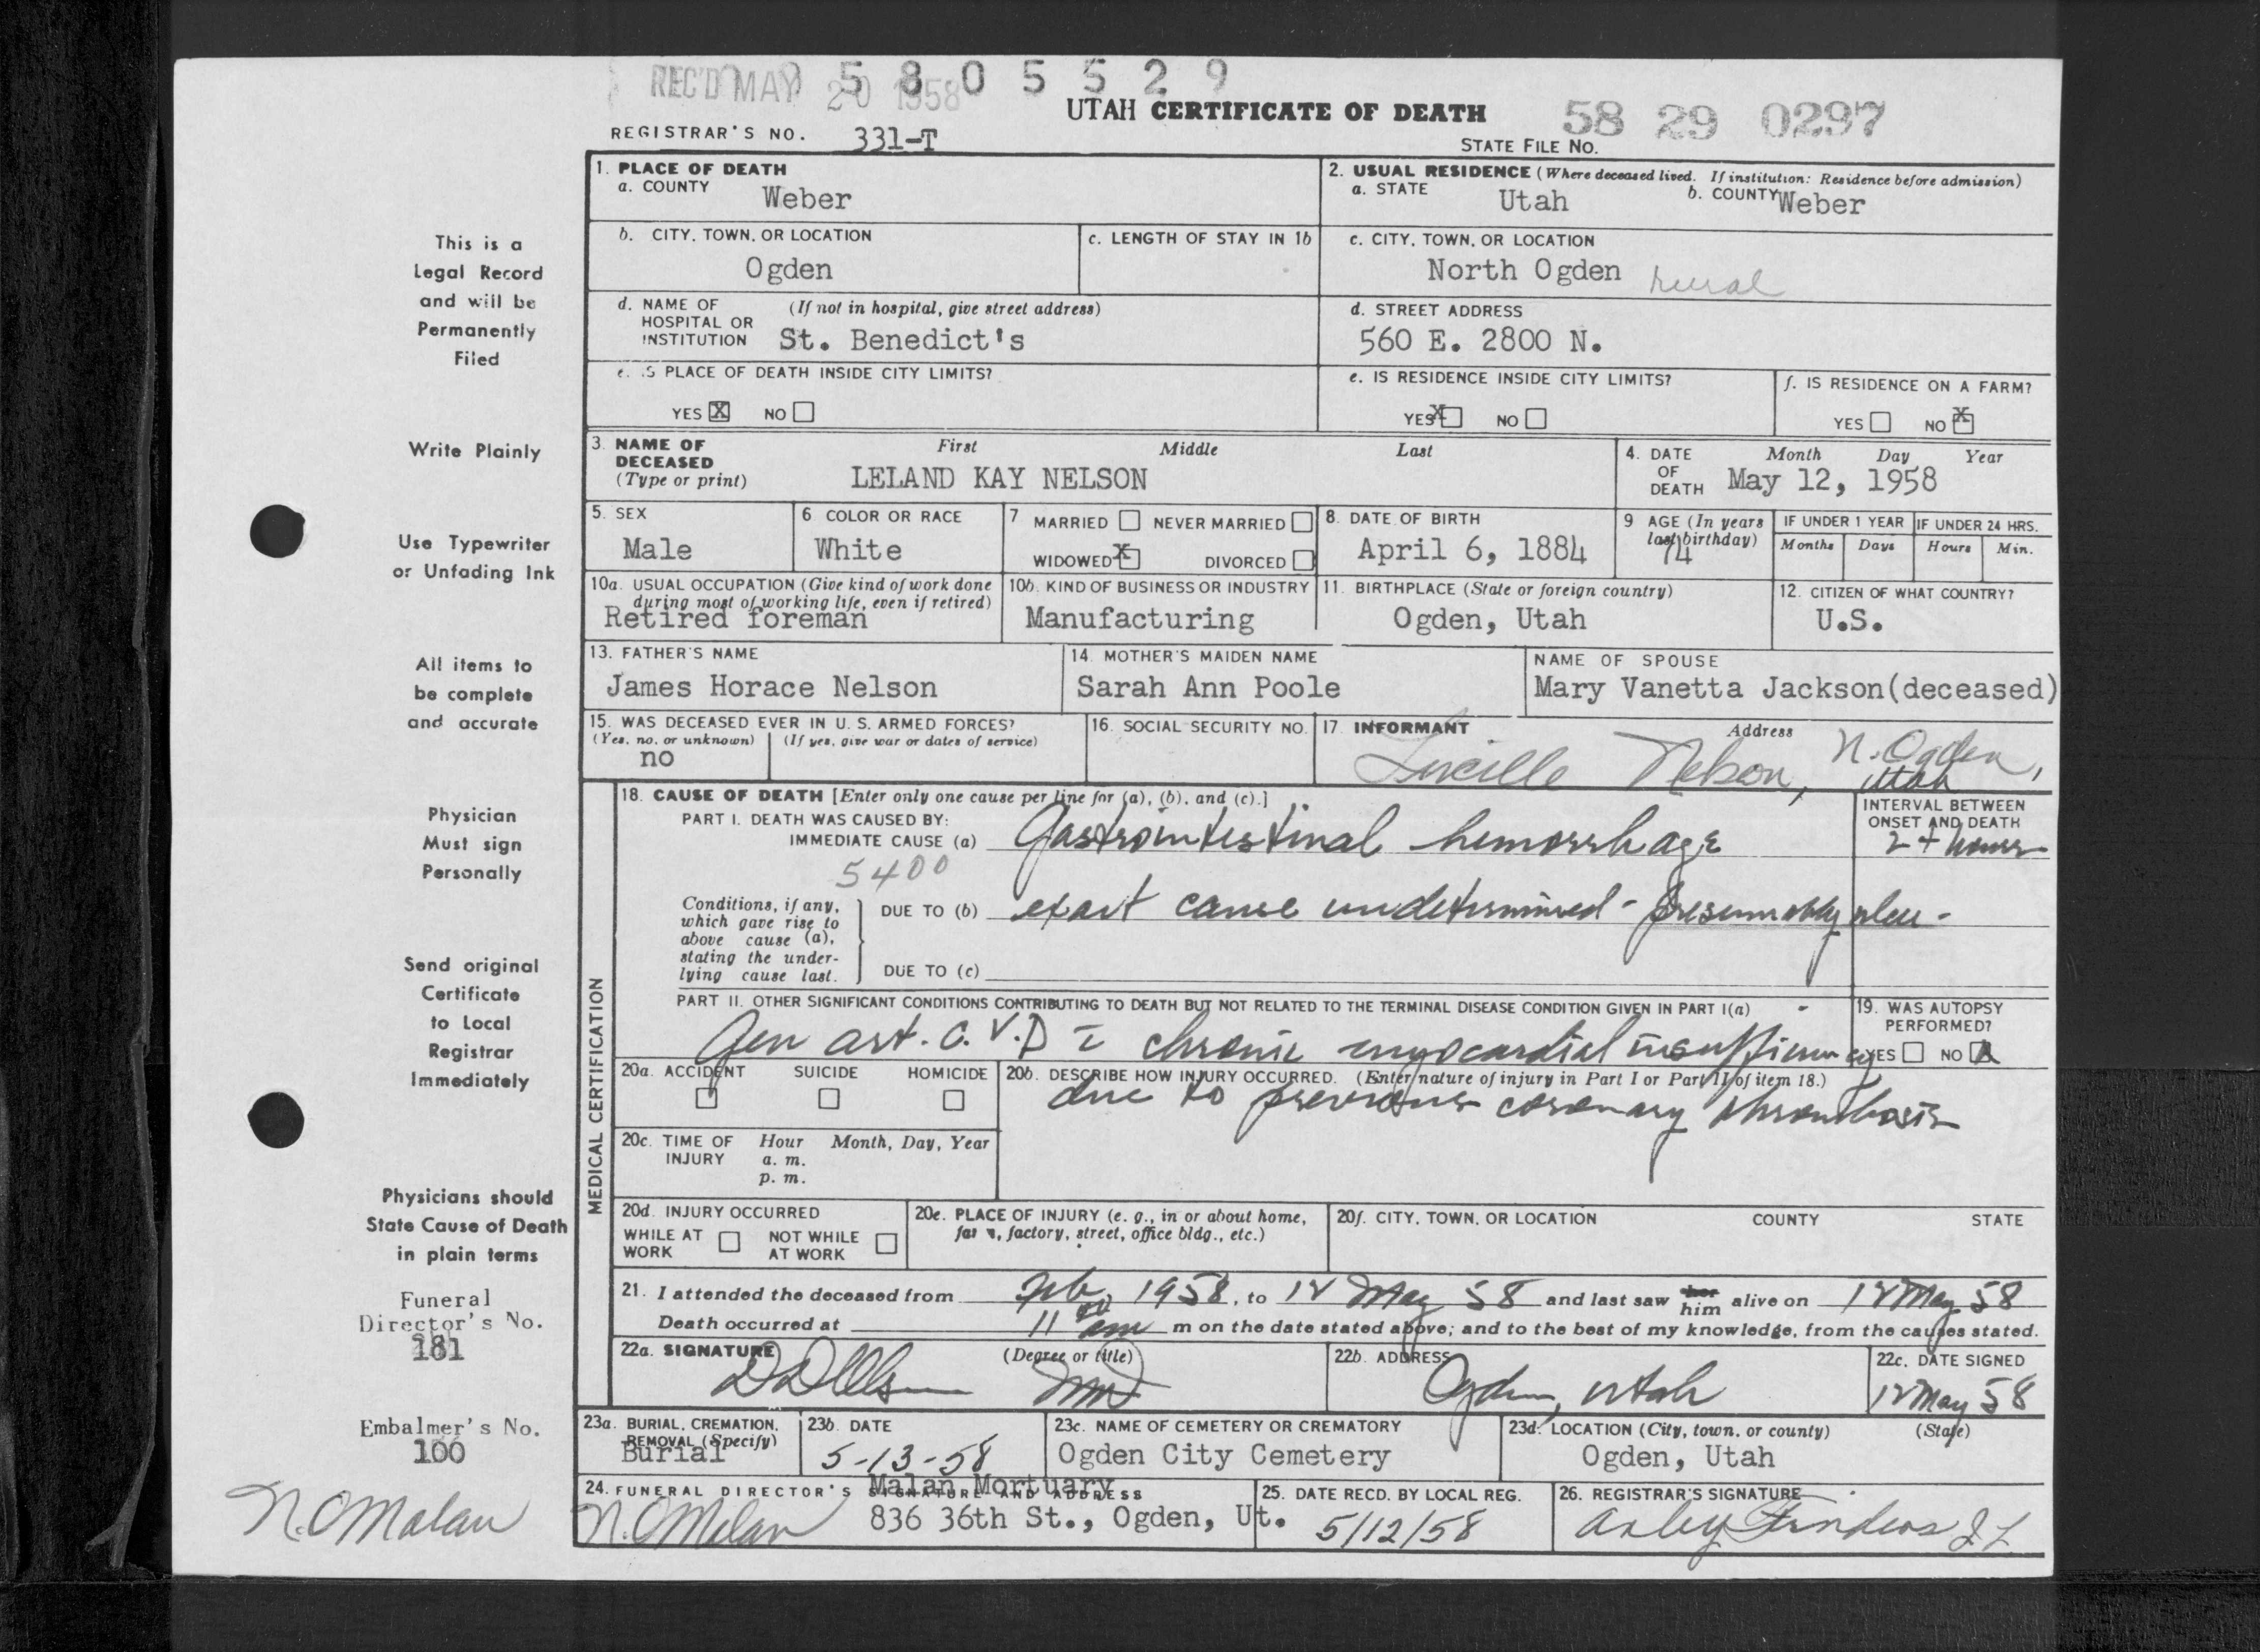 REC'D MAY 20 1958
5 8 0 5 5 2 9
UTAH CERTIFICATE OF DEATH
58 29 0297
REGISTRAR'S NO. 331-T
STATE FILE NO.
This is a
Legal Record
and will be
Permanently
Filed
Write Plainly
Use Typewriter
or Unfading Ink
All items to
be complete
and accurate
Physician
Must sign
Personally
Send original
Certificate
to Local
Registrar
Immediately
Physicians should
State Cause of Death
in plain terms
Funeral
Director's No.
181
Embalmer's No.
100
N.O Malan
1. PLACE OF DEATH
a. COUNTY Weber
2. USUAL RESIDENCE (Where deceased lived. If institution: Residence before admission)
a. STATE Utah b. COUNTY Weber
b. CITY, TOWN, OR LOCATION
Ogden
c. LENGTH OF STAY IN 1b
c. CITY, TOWN, OR LOCATION
North Ogden rural
d. NAME OF HOSPITAL OR INSTITUTION (If not in hospital, give street address)
St. Benedict's
d. STREET ADDRESS
560 E. 2800 N.
e. IS PLACE OF DEATH INSIDE CITY LIMITS?
YES X NO
e. IS RESIDENCE INSIDE CITY LIMITS?
YES X NO
f. IS RESIDENCE ON A FARM?
YES NO X
3. NAME OF DECEASED (Type or print) First Middle Last
LELAND KAY NELSON
4. DATE OF DEATH Month Day Year
May 12, 1958
5. SEX
Male
6 COLOR OR RACE
White
7 MARRIED NEVER MARRIED
WIDOWED X DIVORCED
8. DATE OF BIRTH
April 6, 1884
9 AGE (In years last birthday)
74
IF UNDER 1 YEAR IF UNDER 24 HRS.
Months Days Hours Min.
10a. USUAL OCCUPATION (Give kind of work done during most of working life, even if retired)
Retired foreman
10b. KIND OF BUSINESS OR INDUSTRY
Manufacturing
11. BIRTHPLACE (State or foreign country)
Ogden, Utah
12. CITIZEN OF WHAT COUNTRY?
U.S.
13. FATHER'S NAME
James Horace Nelson
14. MOTHER'S MAIDEN NAME
Sarah Ann Poole
NAME OF SPOUSE
Mary Vanetta Jackson(deceased)
15. WAS DECEASED EVER IN U. S. ARMED FORCES?
(Yes, no, or unknown) (If yes, give war or dates of service)
no
16. SOCIAL SECURITY NO.
17. INFORMANT Address
Lucille Nelson, N. Ogden, Utah
MEDICAL CERTIFICATION
18. CAUSE OF DEATH [Enter only one cause per line for (a), (b), and (c).]
PART I. DEATH WAS CAUSED BY:
IMMEDIATE CAUSE (a) Gastrointestinal hemorrhage
INTERVAL BETWEEN ONSET AND DEATH
2 + hours
5400
Conditions, if any, which gave rise to above cause (a), stating the underlying cause last.
DUE TO (b) exact cause undetermined - presumably ulcer -
DUE TO (c)
PART II. OTHER SIGNIFICANT CONDITIONS CONTRIBUTING TO DEATH BUT NOT RELATED TO THE TERMINAL DISEASE CONDITION GIVEN IN PART I(a)
Gen art. C. V. D c chronic myocardial insufficiency
due to previous coronary thrombosis
19. WAS AUTOPSY PERFORMED?
YES NO X
20a. ACCIDENT SUICIDE HOMICIDE
20b. DESCRIBE HOW INJURY OCCURRED. (Enter nature of injury in Part I or Part II of item 18.)
20c. TIME OF INJURY Hour Month, Day, Year
a. m.
p. m.
20d. INJURY OCCURRED
WHILE AT WORK NOT WHILE AT WORK
20e. PLACE OF INJURY (e. g., in or about home, farm, factory, street, office bldg., etc.)
20f. CITY, TOWN, OR LOCATION COUNTY STATE
21. I attended the deceased from Feb, 1958, to 12 May 58 and last saw her him alive on 12 May 58
Death occurred at 11 00 am m on the date stated above; and to the best of my knowledge, from the causes stated.
22a. SIGNATURE (Degree or title)
MD
22b. ADDRESS
Ogden, Utah
22c. DATE SIGNED
12 May 58
23a. BURIAL, CREMATION, REMOVAL (Specify)
Burial
23b. DATE
5-13-58
23c. NAME OF CEMETERY OR CREMATORY
Ogden City Cemetery
23d. LOCATION (City, town, or county) (State)
Ogden, Utah
24. FUNERAL DIRECTOR'S SIGNATURE AND ADDRESS
Malan Mortuary
N.O Malan 836 36th St., Ogden, Ut.
25. DATE RECD. BY LOCAL REG.
5/12/58
26. REGISTRAR'S SIGNATURE